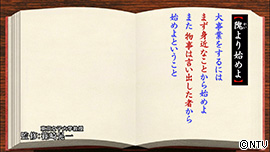 【隗より始めよ】
大事業をするには
まず身近なことから始めよ
また 物事は言い出した者から
始めよということ
©NTV